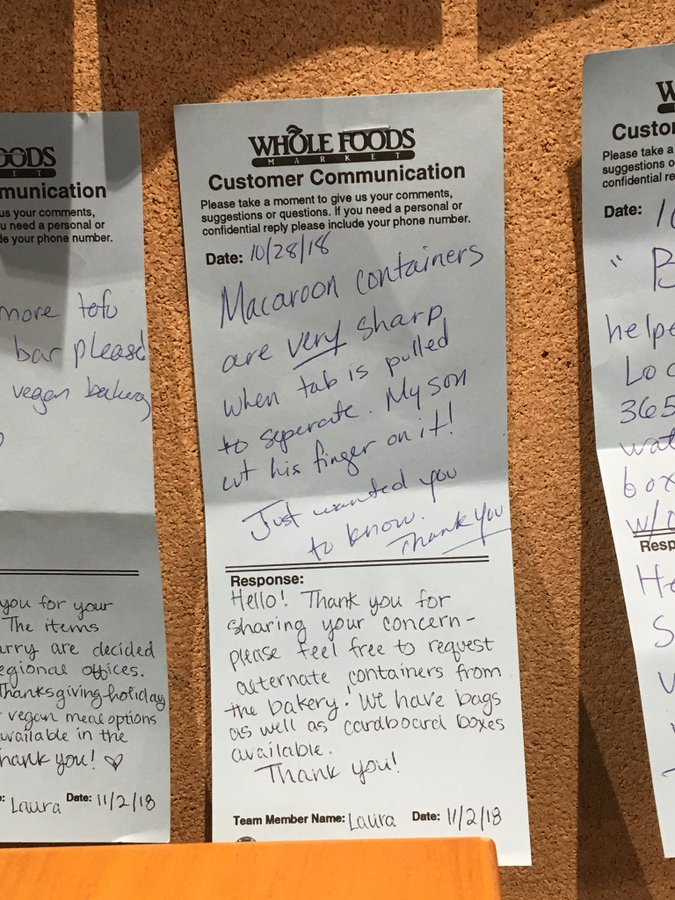 OODS
ET
munication
us your comments,
u need a personal or
de your phone number.
more tofu
bar please
vegan bakery
you for your
The items
arry are decided
egional offices.
Thanksgiving holiday
vegan meal options
vailable in the
hank you! ♡
: Laura Date: 11/2/18
WHOLE FOODS
MARKET
Customer Communication
Please take a moment to give us your comments,
suggestions or questions. If you need a personal or
confidential reply please include your phone number.
Date: 10/28/18
Macaroon containers
are very sharp
when tab is pulled
to seperate. My son
cut his finger on it!
Just wanted you
to know.
Thank you
Response:
Hello! Thank you for
sharing your concern-
please feel free to request
alternate containers from
the bakery! We have bags
as well as cardboard boxes
available.
Thank you!
Team Member Name: Laura Date: 11/2/18
W
Custo
Please take a
suggestions o
confidential re
Date: 10
" B
helpe
Loc
365
wat
box
w/o
Resp
He
S